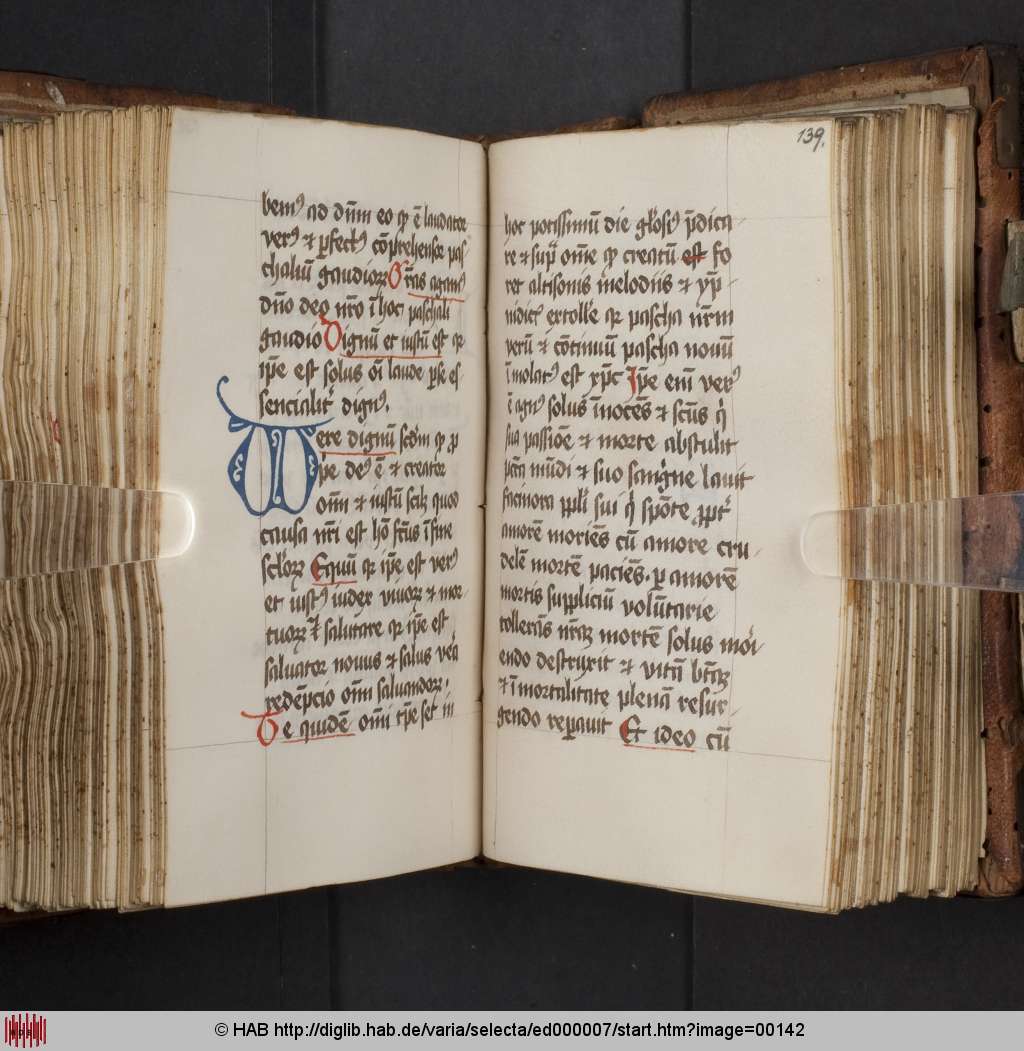 bem᷒ ad dn̄m eo qp̄ ē laudator
ver᷒ ⁊ ꝑfect᷒ cōprehensor pas
chaliū gaudioꝝ Gr̄as agam᷒
dn̄o deo nr̄o ī hoc paschali
gaudio Dignū et iustū est qꝛ
ip̄e est solus oī laude ꝑ se es
sencialit᷑ dign᷒.
Uere dignū
ip̄e de᷒ ē ⁊ creator
oīm ⁊ iustū scilꝫ quod
causa nr̄i est hō fc̄us ī fine
sc̄loꝝ Equū qꝛ ip̄e est ver᷒
et iust᷒ iudex viuoꝝ ⁊ mor
tuoꝝ salutare qꝛ ip̄e est
saluator nouus ⁊ salus ve͛a
redēpcio oīm saluandoꝝ.
Te quidē oīm tp̄e set in
139.
hoc potissimū die gl'os᷒ p̄dica
re ⁊ sup͛ om̄e qp̄ creatū est fo
ret altisonis melodiis ⁊ yp
nidic᷒ extoll'e qꝛ pascha nr̄m
verū ⁊ cōtinuū pascha nouū
īmolat᷒ est xp̄c Ip̄e eni ver᷒
ē agn᷒ solus īnocēs ⁊ sc̄us qͥ
sua passiōe ⁊ morte abstulit
pcc̄a mūdi ⁊ suo sangͥne lauit
facinora ppl'i sui qͥ spōte ꝓpt᷑
amorē moriēs cū amore cru
delē mortē paciēs. ꝑ amorē
mortis suppliciū volūtarie
tollerās nr̄aꝫ mortē solus moͥ
endo destruxit ⁊ vitā btāꝫ
⁊ īmortalitate plenā resur
gendo reꝑauit Et ideo cū
© HAB http://diglib.hab.de/varia/selecta/ed000007/start.htm?image=00142